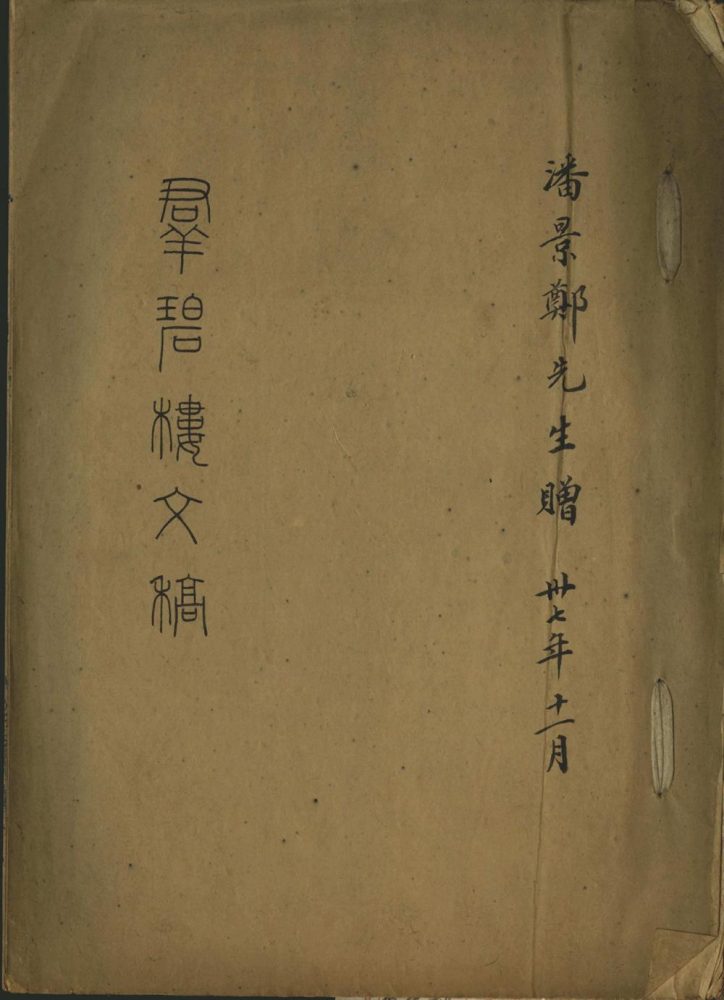 潘景鄭先生贈 卅七年十一月
羣碧樓文稿